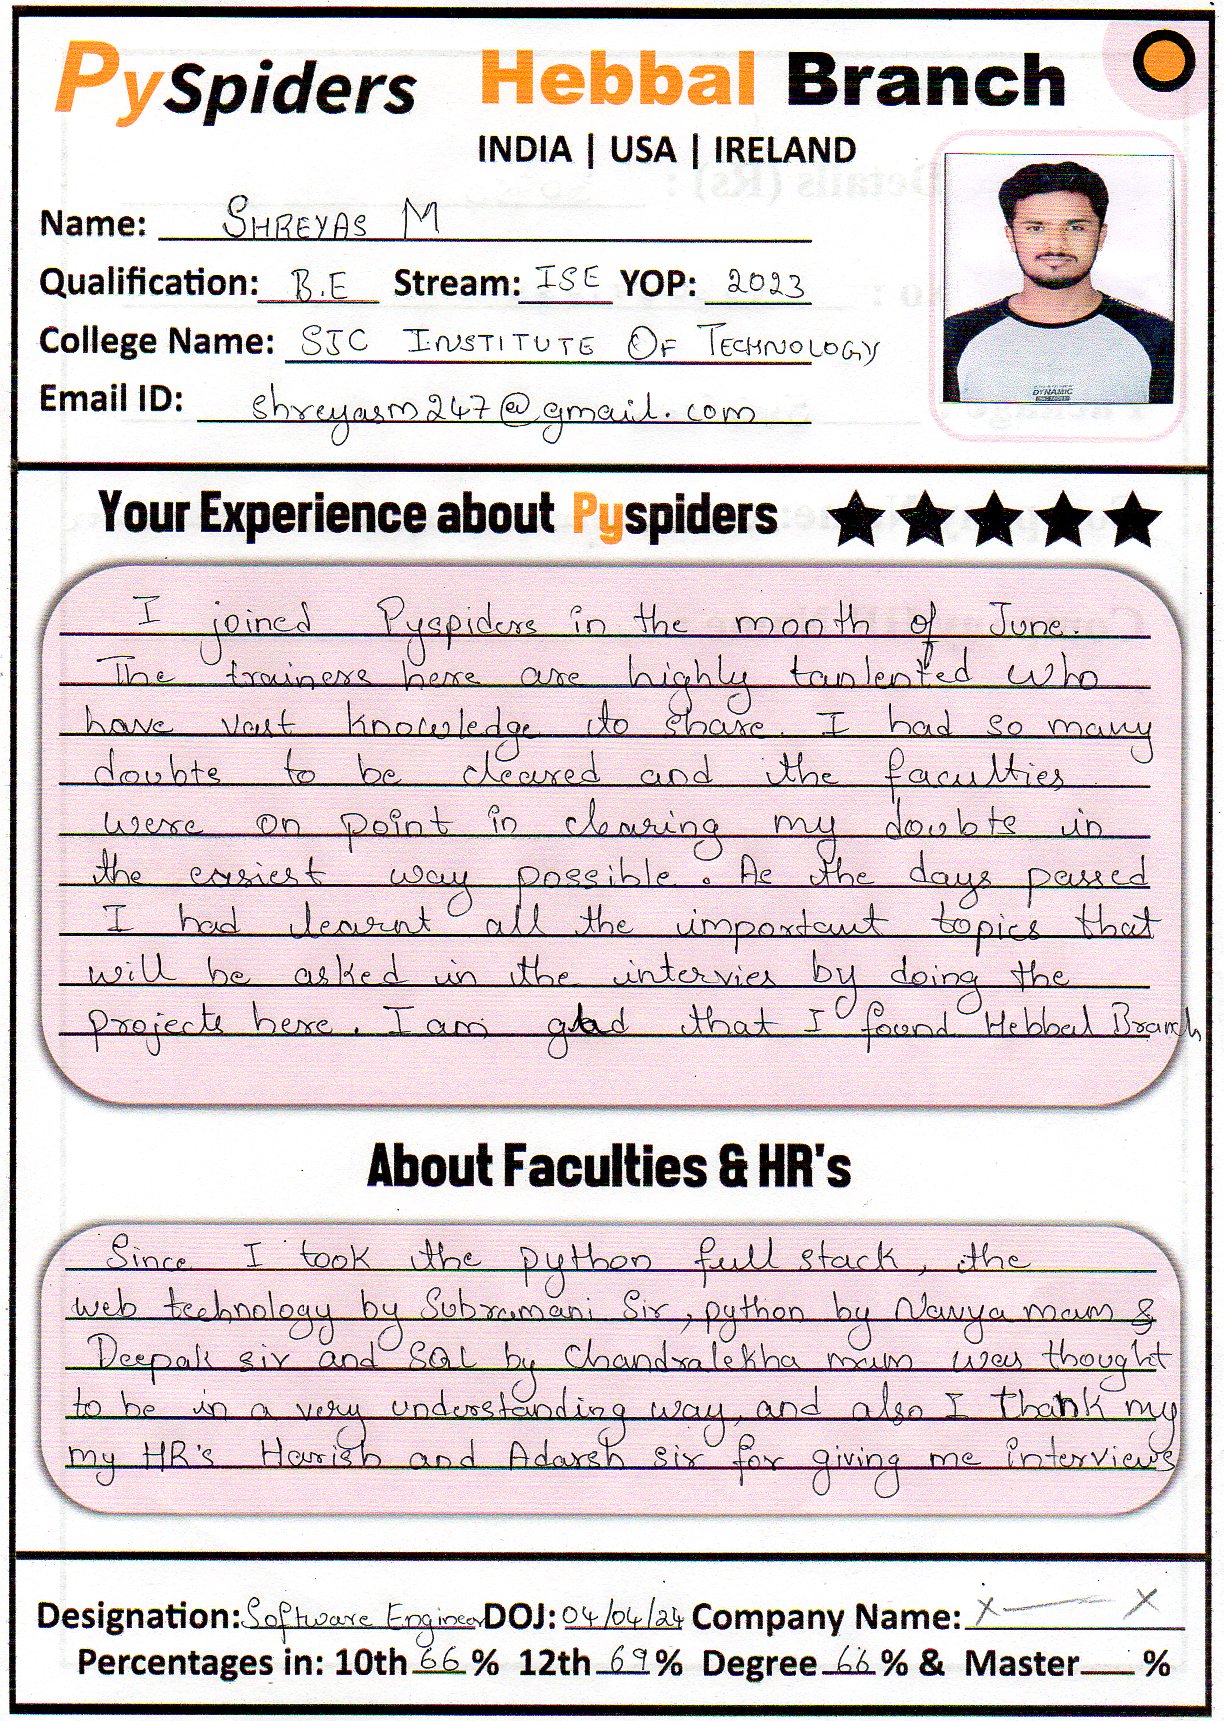 PySpiders Hebbal Branch
INDIA | USA | IRELAND
Name: SHREYAS M
Qualification: B.E Stream: ISE YOP: 2023
College Name: SJC INSTITUTE OF TECHNOLOGY
Email ID: shreyasm247@gmail.com
DYNAMIC
Your Experience about Pyspiders ★★★★★
I joined Pyspiders in the month of June.
The trainers here are highly tanlented who
have vast knowledge to share. I had so many
doubts to be cleared and the faculties
were on point in clearing my doubts in
the easiest way possible. As the days passed
I had learnt all the important topics that
will be asked in the intervies by doing the
projects here. I am glad that I found Hebbal Branch
About Faculties & HR's
Since I took the python full stack, the
web technology by Subramani Sir, python by Navya mam &
Deepak sir and SQL by Chandralekha mam was thought
to be in a very understanding way, and also I thank my
my HR's Harish and Adarsh sir for giving me interviews
Designation: Software Engineer DOJ: 04/04/24 Company Name: X — X
Percentages in: 10th 66 % 12th 69 % Degree 66 % & Master ___ %